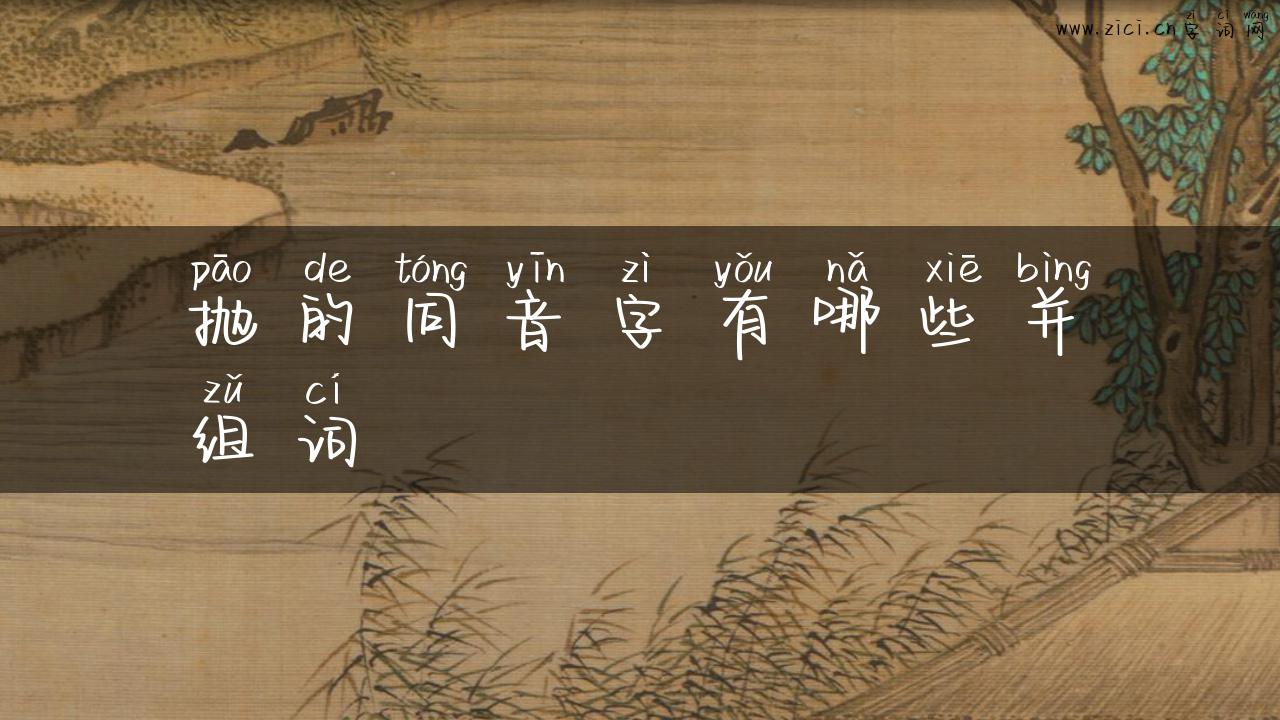 zì cí wǎng
www.zici.cn字词网
pāo de tóng yīn zì yǒu nǎ xiē bìng
抛的同音字有哪些并
zǔ cí
组词